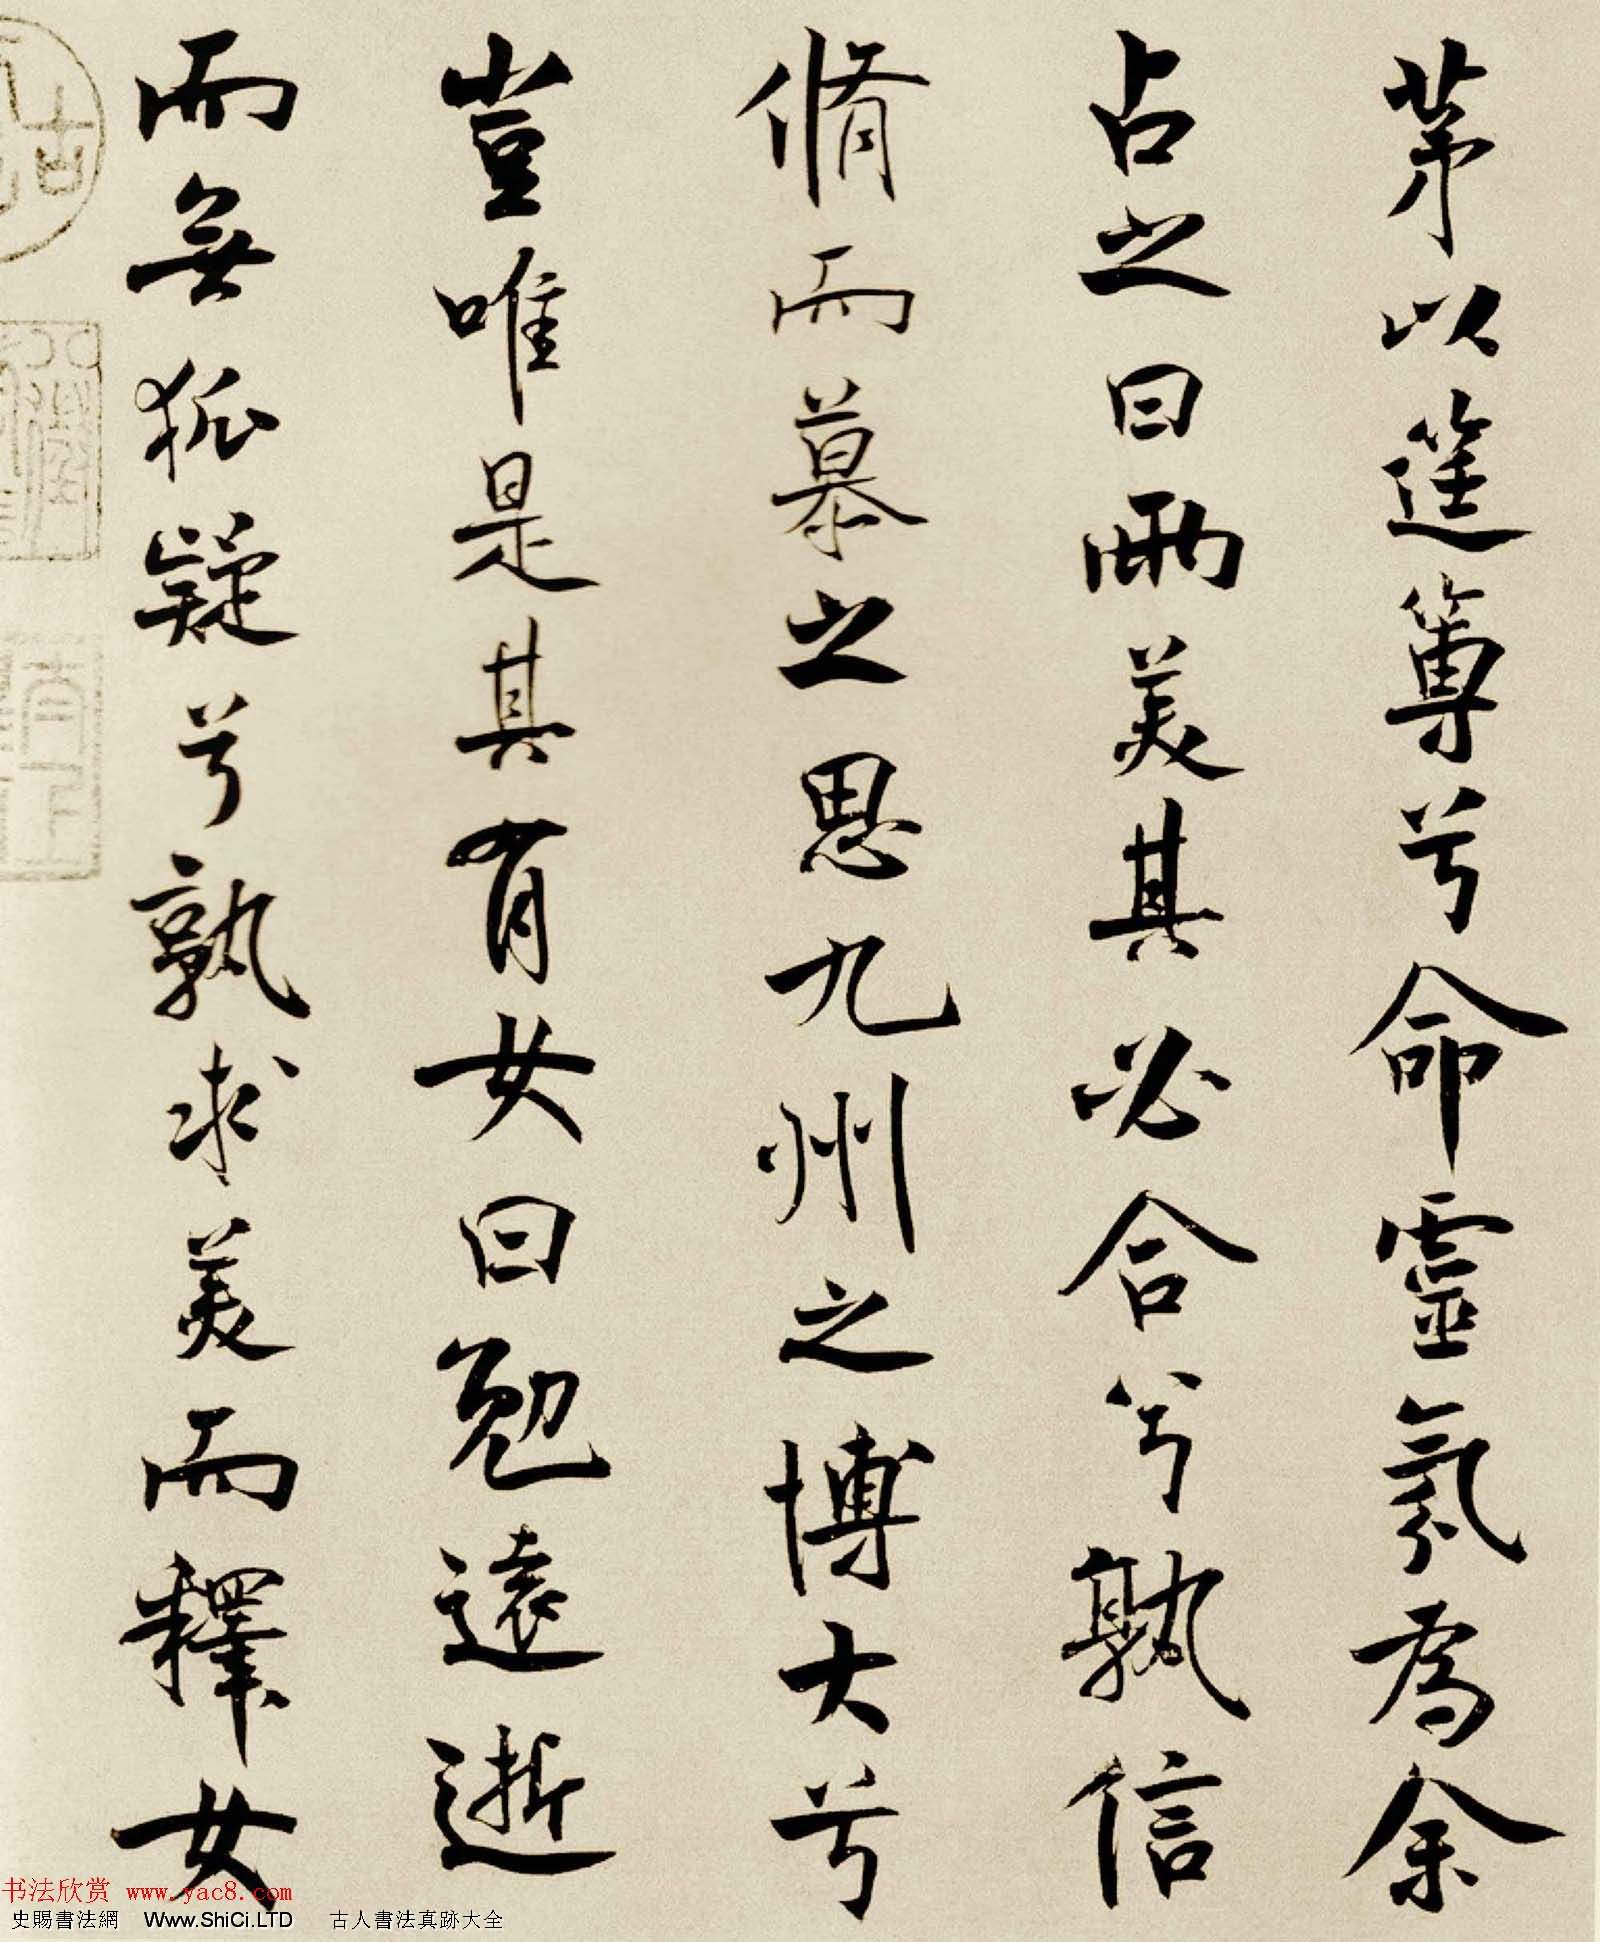 茅以筳篿兮命靈氛為余
占之曰兩美其必合兮孰信
脩而慕之思九州之博大兮
豈唯是其有女曰勉遠逝
而無狐疑兮孰求美而釋女
书法欣赏 www.yac8.com
史賜書法網 Www.ShiCi.LTD 古人書法真跡大全